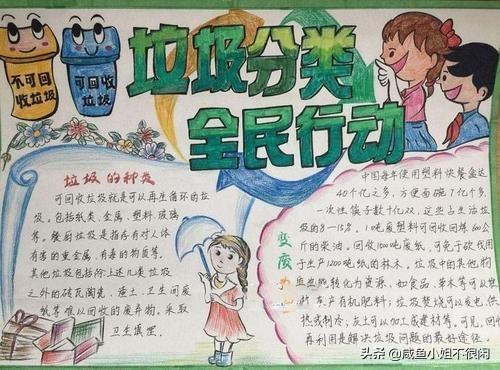 不可回
收垃圾
可回收
垃圾
垃圾分类
全民行动
垃圾的种类
可回收垃圾就是可以再生循环的垃
圾。包括纸类、金属、塑料、玻璃
等。餐厨垃圾是指存有对人体
有害的重金属、有毒的物质等。
其他垃圾包括除上述几类垃圾
之外的砖瓦陶瓷、渣土、卫生间废
纸等难以回收的废弃物,采取
卫生填埋。
变废
中国每年使用塑料快餐盒达
40个亿之多,方便面碗7亿个多,
一次性筷子数十亿双,这些占生活垃
圾的8—15%。1吨废塑料可回收回炼600公
斤的柴油。回收1500吨废纸,可免于砍伐用
于生产1200吨纸的林木。垃圾中的其他物
也能转化为资源,如食品、草木等可以堆
肥,生产有机肥料;垃圾焚烧可以发电、供
热或制冷;灰土可以加工成建材等。可见,回收
再利用是解决垃圾问题的最好途径。
头条 @咸鱼小姐不很闲